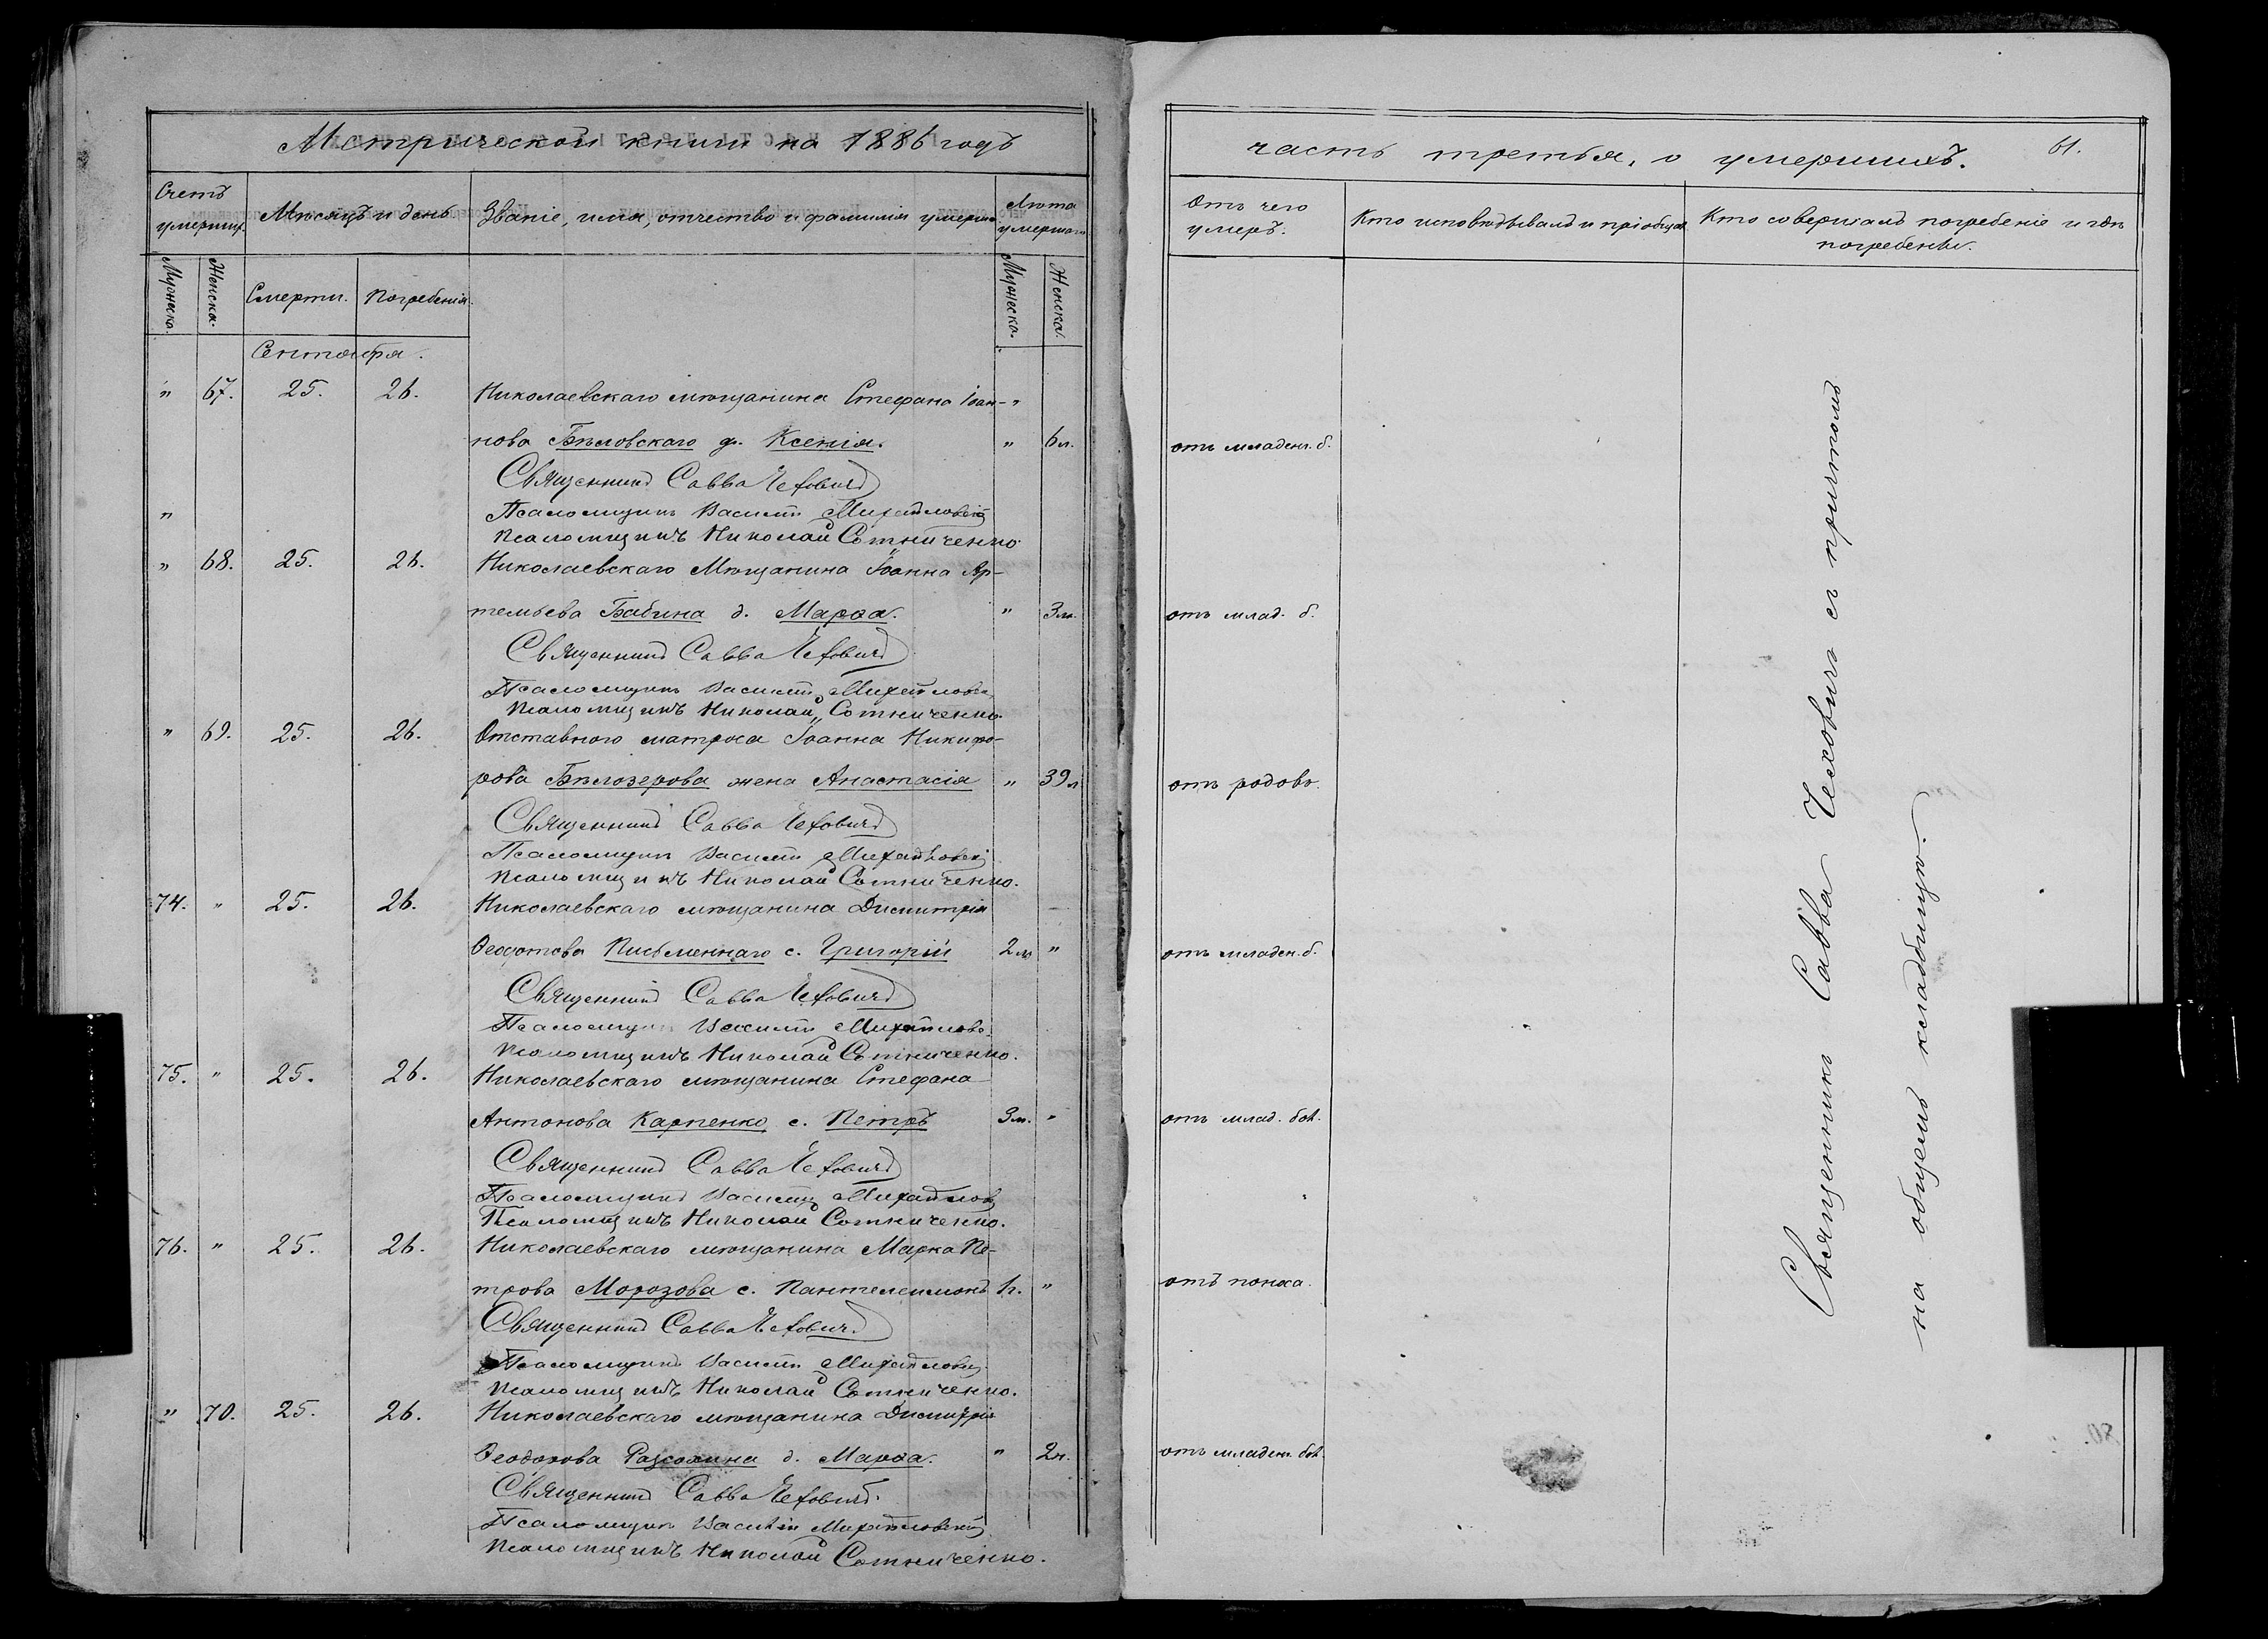 Метрической книги на 1886 годъ
Счетъ умершихъ.
Мѣсяцъ и день
Званіе, имя, отчество и фамилія умерш.
Лѣта умершаго
Мужеска. Женска. Смерти. Погребенія. Мужеска. Женска.
Сентября.
" 67. 25. 26. Николаевскаго мѣщанина Стефана Іоан- "
нова Бѣловскаго д. Ксенія. " 6 л.
Священникъ Савва Чеховичъ
" Псаломщикъ Василій Михайловскій
Псаломщикъ Николай Сотниченко
" 68. 25. 26. Николаевскаго Мѣщанина Іоанна Ар-
темьева Бабина д. Марѳа. " 3 м.
Священникъ Савва Чеховичъ
Псаломщикъ Василій Михайловск
Псаломщикъ Николай Сотниченко.
" 69. 25. 26. Отставного матроса Іоанна Никифо-
рова Бѣлозерова жена Анастасія " 39 л.
Священникъ Савва Чеховичъ
Псаломщикъ Василій Михайловскій
Псаломщикъ Николай Сотниченко.
74. " 25. 26. Николаевскаго мѣщанина Димитрія
Ѳедотова Письменнаго с. Григорій 2 м. "
Священникъ Савва Чеховичъ
Псаломщикъ Василій Михайловс.
Псаломщикъ Николай Сотниченко.
75. " 25. 26. Николаевскаго мѣщанина Стефана
Антонова Карпенко с. Петръ 3 м. "
Священникъ Савва Чеховичъ
Псаломщикъ Василій Михайлов
Псаломщикъ Николай Сотниченко.
76. " 25. 26. Николаевскаго мѣщанина Марка Пе-
трова Морозова с. Пантелеимонъ "
Священникъ Савва Чеховичъ.
Псаломщикъ Василій Михайловск
Псаломщикъ Николай Сотниченко.
" 70. 25. 26. Николаевскаго мѣщанина Димитрія
Ѳеодорова д. Марѳа. "
Священникъ Савва Чеховичъ.
Псаломщикъ Василій Михайловскій
Псаломщикъ Николай Сотниченко.
часть третья, о умершихъ. 61.
Отъ чего умеръ.
Кто исповѣдывалъ и пріобщ.
Кто совершалъ погребеніе и гдѣ
погребены.
отъ младенч. б.
отъ млад. б.
отъ родовъ.
отъ младен. б.
отъ млад. бол.
отъ поноса.
отъ младенч. бол.
Священникъ Савва Чеховичъ съ причтомъ
на общемъ кладбищѣ.